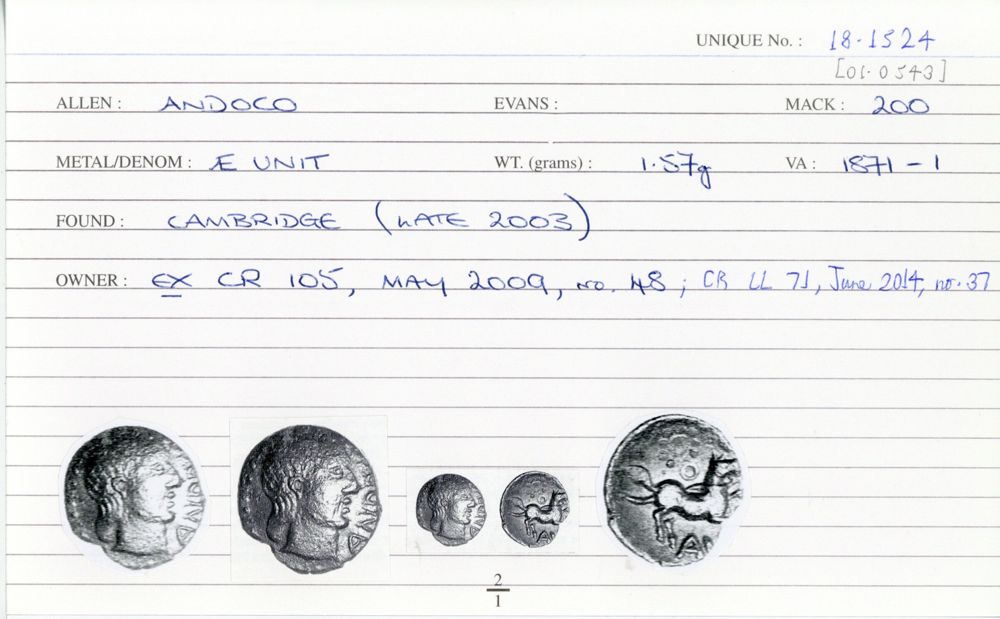 UNIQUE No. : 18·1524
[01·0543]
ALLEN : ANDOCO EVANS : MACK : 200
METAL/DENOM : Æ UNIT WT. (grams) : 1·57g VA : 1871 – 1
FOUND : CAMBRIDGE (LATE 2003)
OWNER : EX CR 105, MAY 2009, no. 48 ; CR LL 71, June 2014, no. 37
2
1